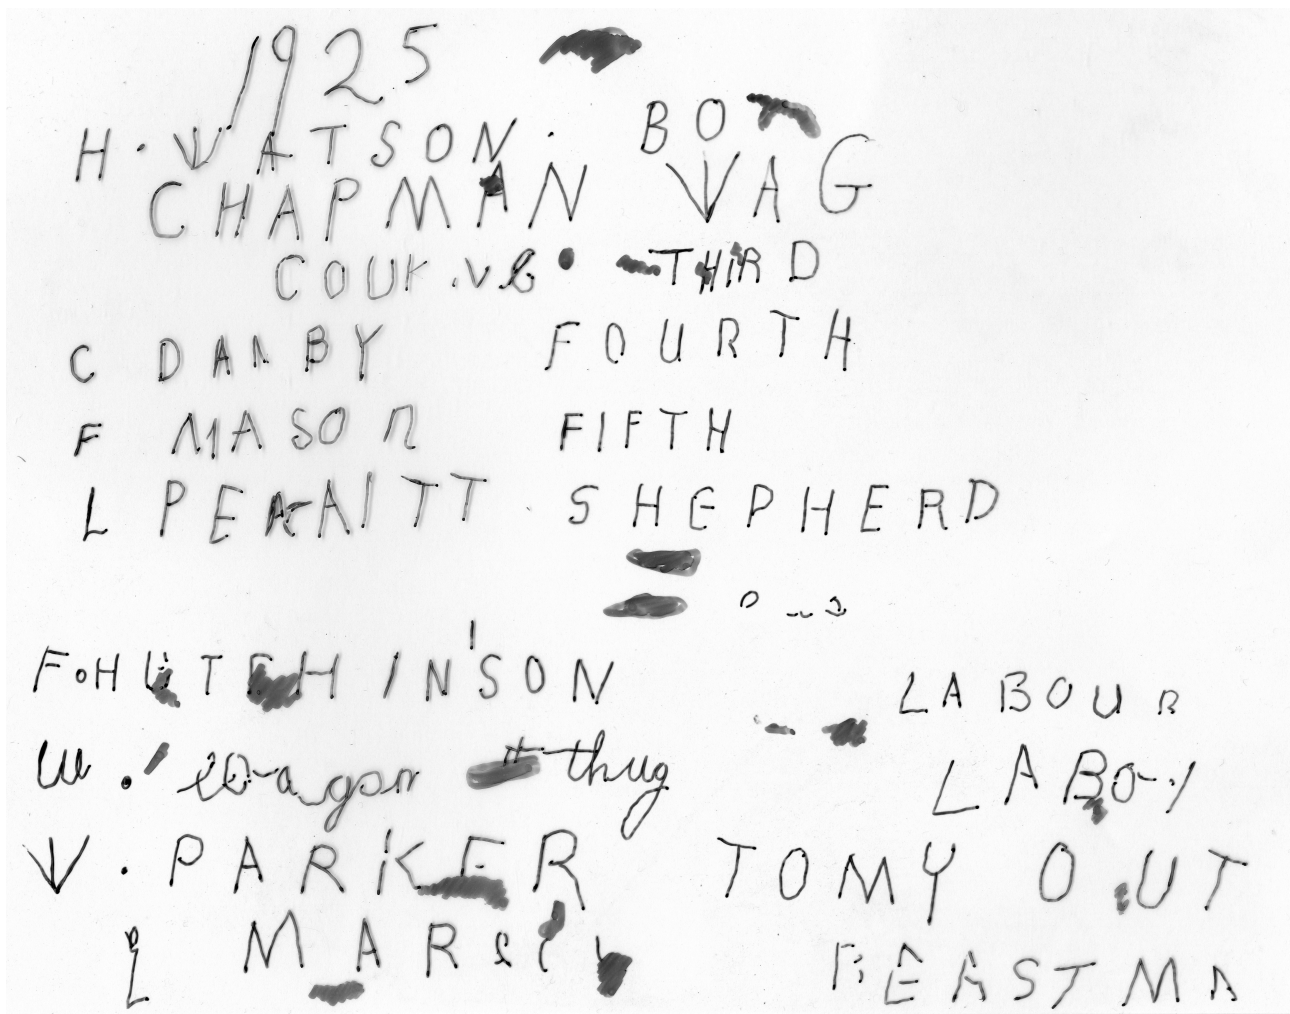 1925
H. WATSON. BO
CHAPMAN WAG
THIRD
C DANBY FOURTH
F MASON FIFTH
L SHEPHERD
F. HUTCHINSON LABOUR
W. wagon thug
W. PARKER TOMY OUT
BEASTMA